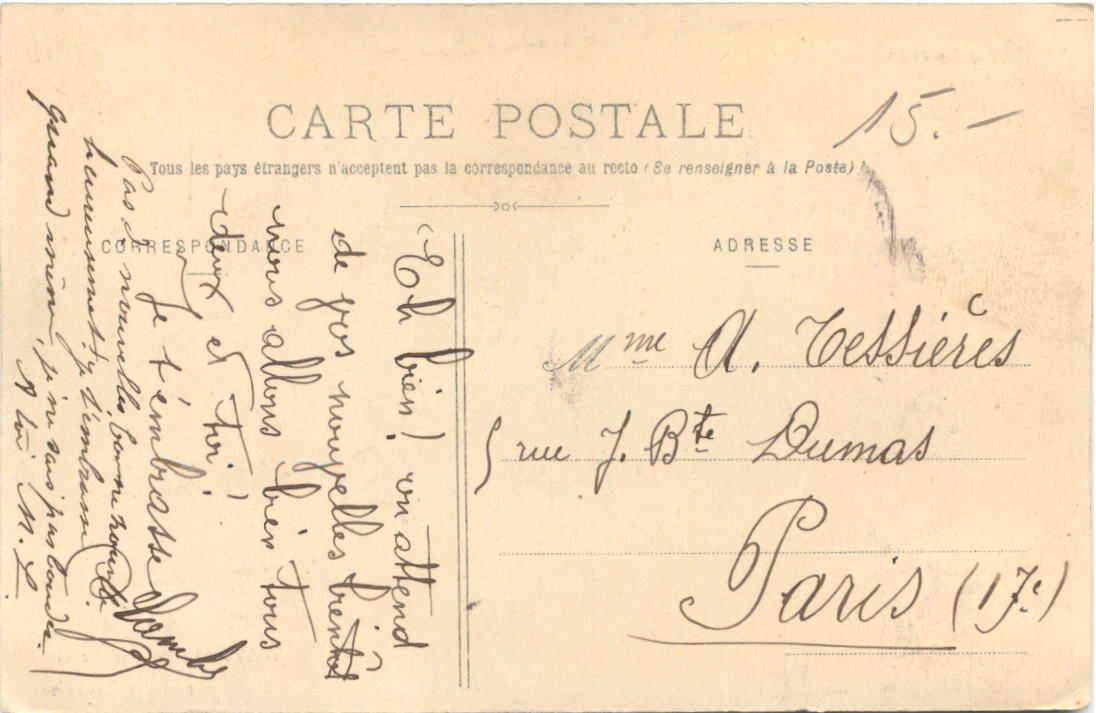 CARTE POSTALE
15.-
Tous les pays étrangers n'acceptent pas la correspondance au recto (Se renseigner à la Poste)
CORRESPONDANCE
Eh bien! on attend
de vos nouvelles bientôt
nous allons bien tous
deux, et toi!
Je t'embrasse
Pas de nouvelles bonne nouvelle
heureusement; je t'embrasse
quand même, je ne sais pas bouder.
A toi M. L
ADRESSE
Mme A. Tessières
5 rue J. Bte Dumas
Paris (17e)